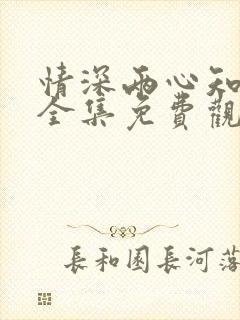 情深兩心知
全集免費觀
長和園長河落